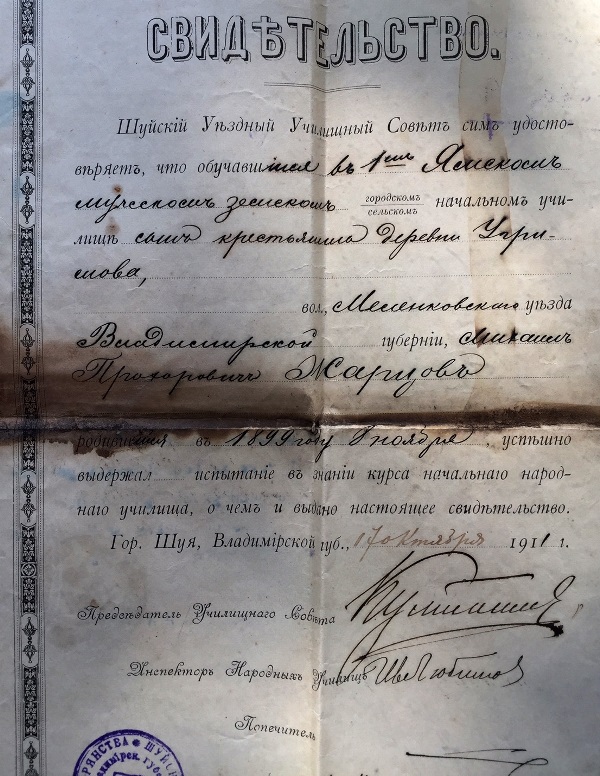 СВИДѢТЕЛЬСТВО.
Шуйскій Уѣздный Училищный Совѣтъ симъ удосто-
вѣряетъ, что обучавшійся въ 1омъ Ямскомъ
мужскомъ земскомъ городскомъ сельскомъ начальномъ учи-
лищѣ сынъ крестьянина деревни Угри-
мова,
вол., Меленковскаго уѣзда
Владимирской губерніи, Михаилъ
Прохоровичъ Жарцовъ
родившійся въ 1899 году 8 ноября, успѣшно
выдержалъ испытаніе въ знаніи курса начальнаго народ-
наго училища, о чемъ и выдано настоящее свидѣтельство.
Гор. Шуя, Владимірской губ., 17 октября 1911 г.
Предсѣдатель Училищнаго Совѣта
Инспекторъ Народныхъ Училищъ
Попечитель